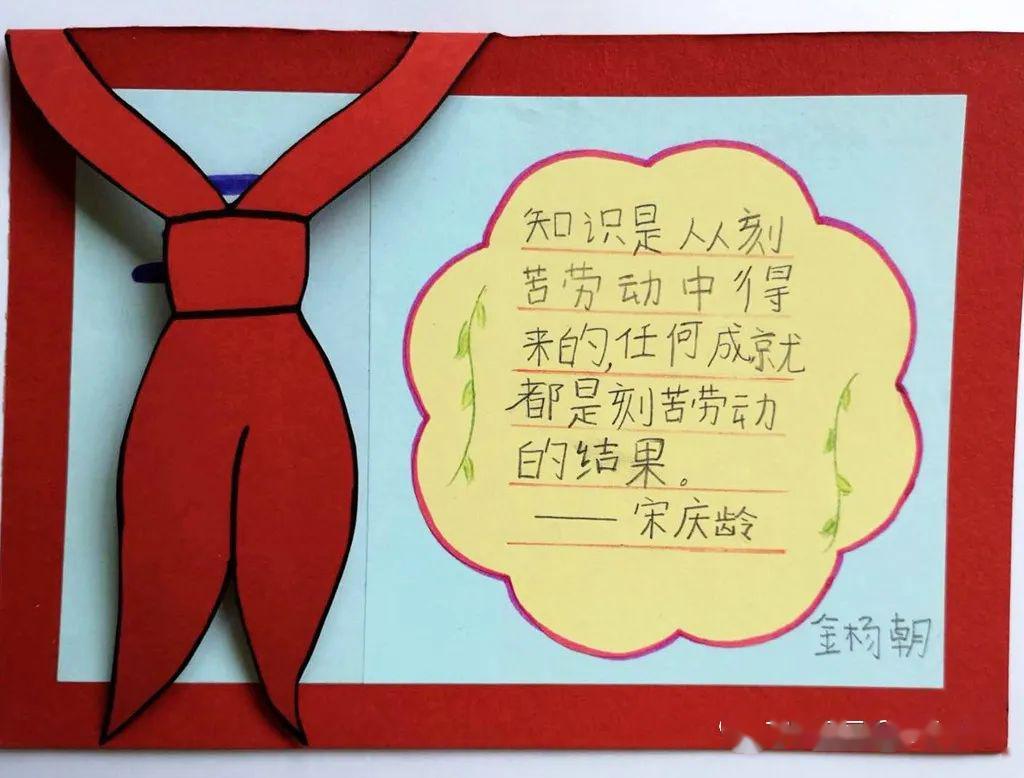 知识是从刻
苦劳动中得
来的,任何成就
都是刻苦劳动
的结果。
——宋庆龄
金杨朝